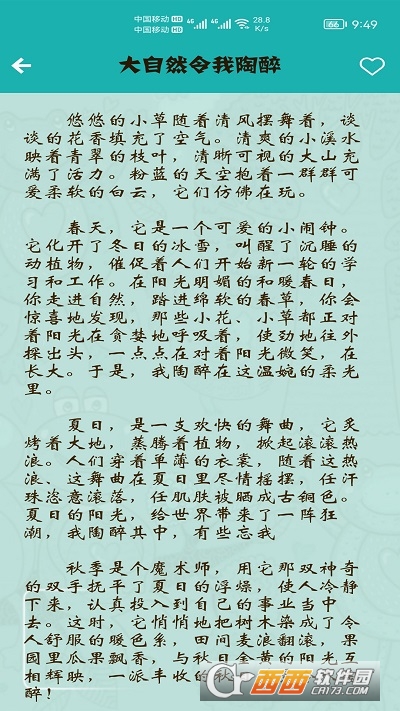 中国移动 HD 4G 4G 28.8 K/s 66 9:49
中国移动 HD
大自然令我陶醉
悠悠的小草随着清风摆舞着，谈
谈的花香填充了空气。清爽的小溪水
映着青翠的枝叶，清晰可视的大山充
满了活力。粉蓝的天空抱着一群群可
爱柔软的白云，它们仿佛在玩。
春天，它是一个可爱的小闹钟。
它化开了冬日的冰雪，叫醒了沉睡的
动植物，催促着人们开始新一轮的学
习和工作。在阳光明媚的和暖春日，
你走进自然，踏进绵软的春草，你会
惊喜地发现，那些小花、小草都正对
着阳光在贪婪地呼吸着，使劲地往外
探出头，一点点在对着阳光微笑，在
长大。于是，我陶醉在这温婉的柔光
里。
夏日，是一支欢快的舞曲，它炙
烤着大地，蒸腾着植物，掀起滚滚热
浪。人们穿着单薄的衣裳，随着这热
浪、这舞曲在夏日里尽情摇摆，任汗
珠恣意滚落，任肌肤被晒成古铜色。
夏日的阳光，给世界带来了一阵狂
潮，我陶醉其中，有些忘我
秋季是个魔术师，用它那双神奇
的双手抚平了夏日的浮燥，使人冷静
下来，认真投入到自己的事业当中
去。这时，它悄悄地把树木染成了令
人舒服的暖色系，田间麦浪翻滚，果
园里瓜果飘香，与秋日金黄的阳光互
相辉映，一派丰收的秋
醉！
西西软件园
CR173.COM